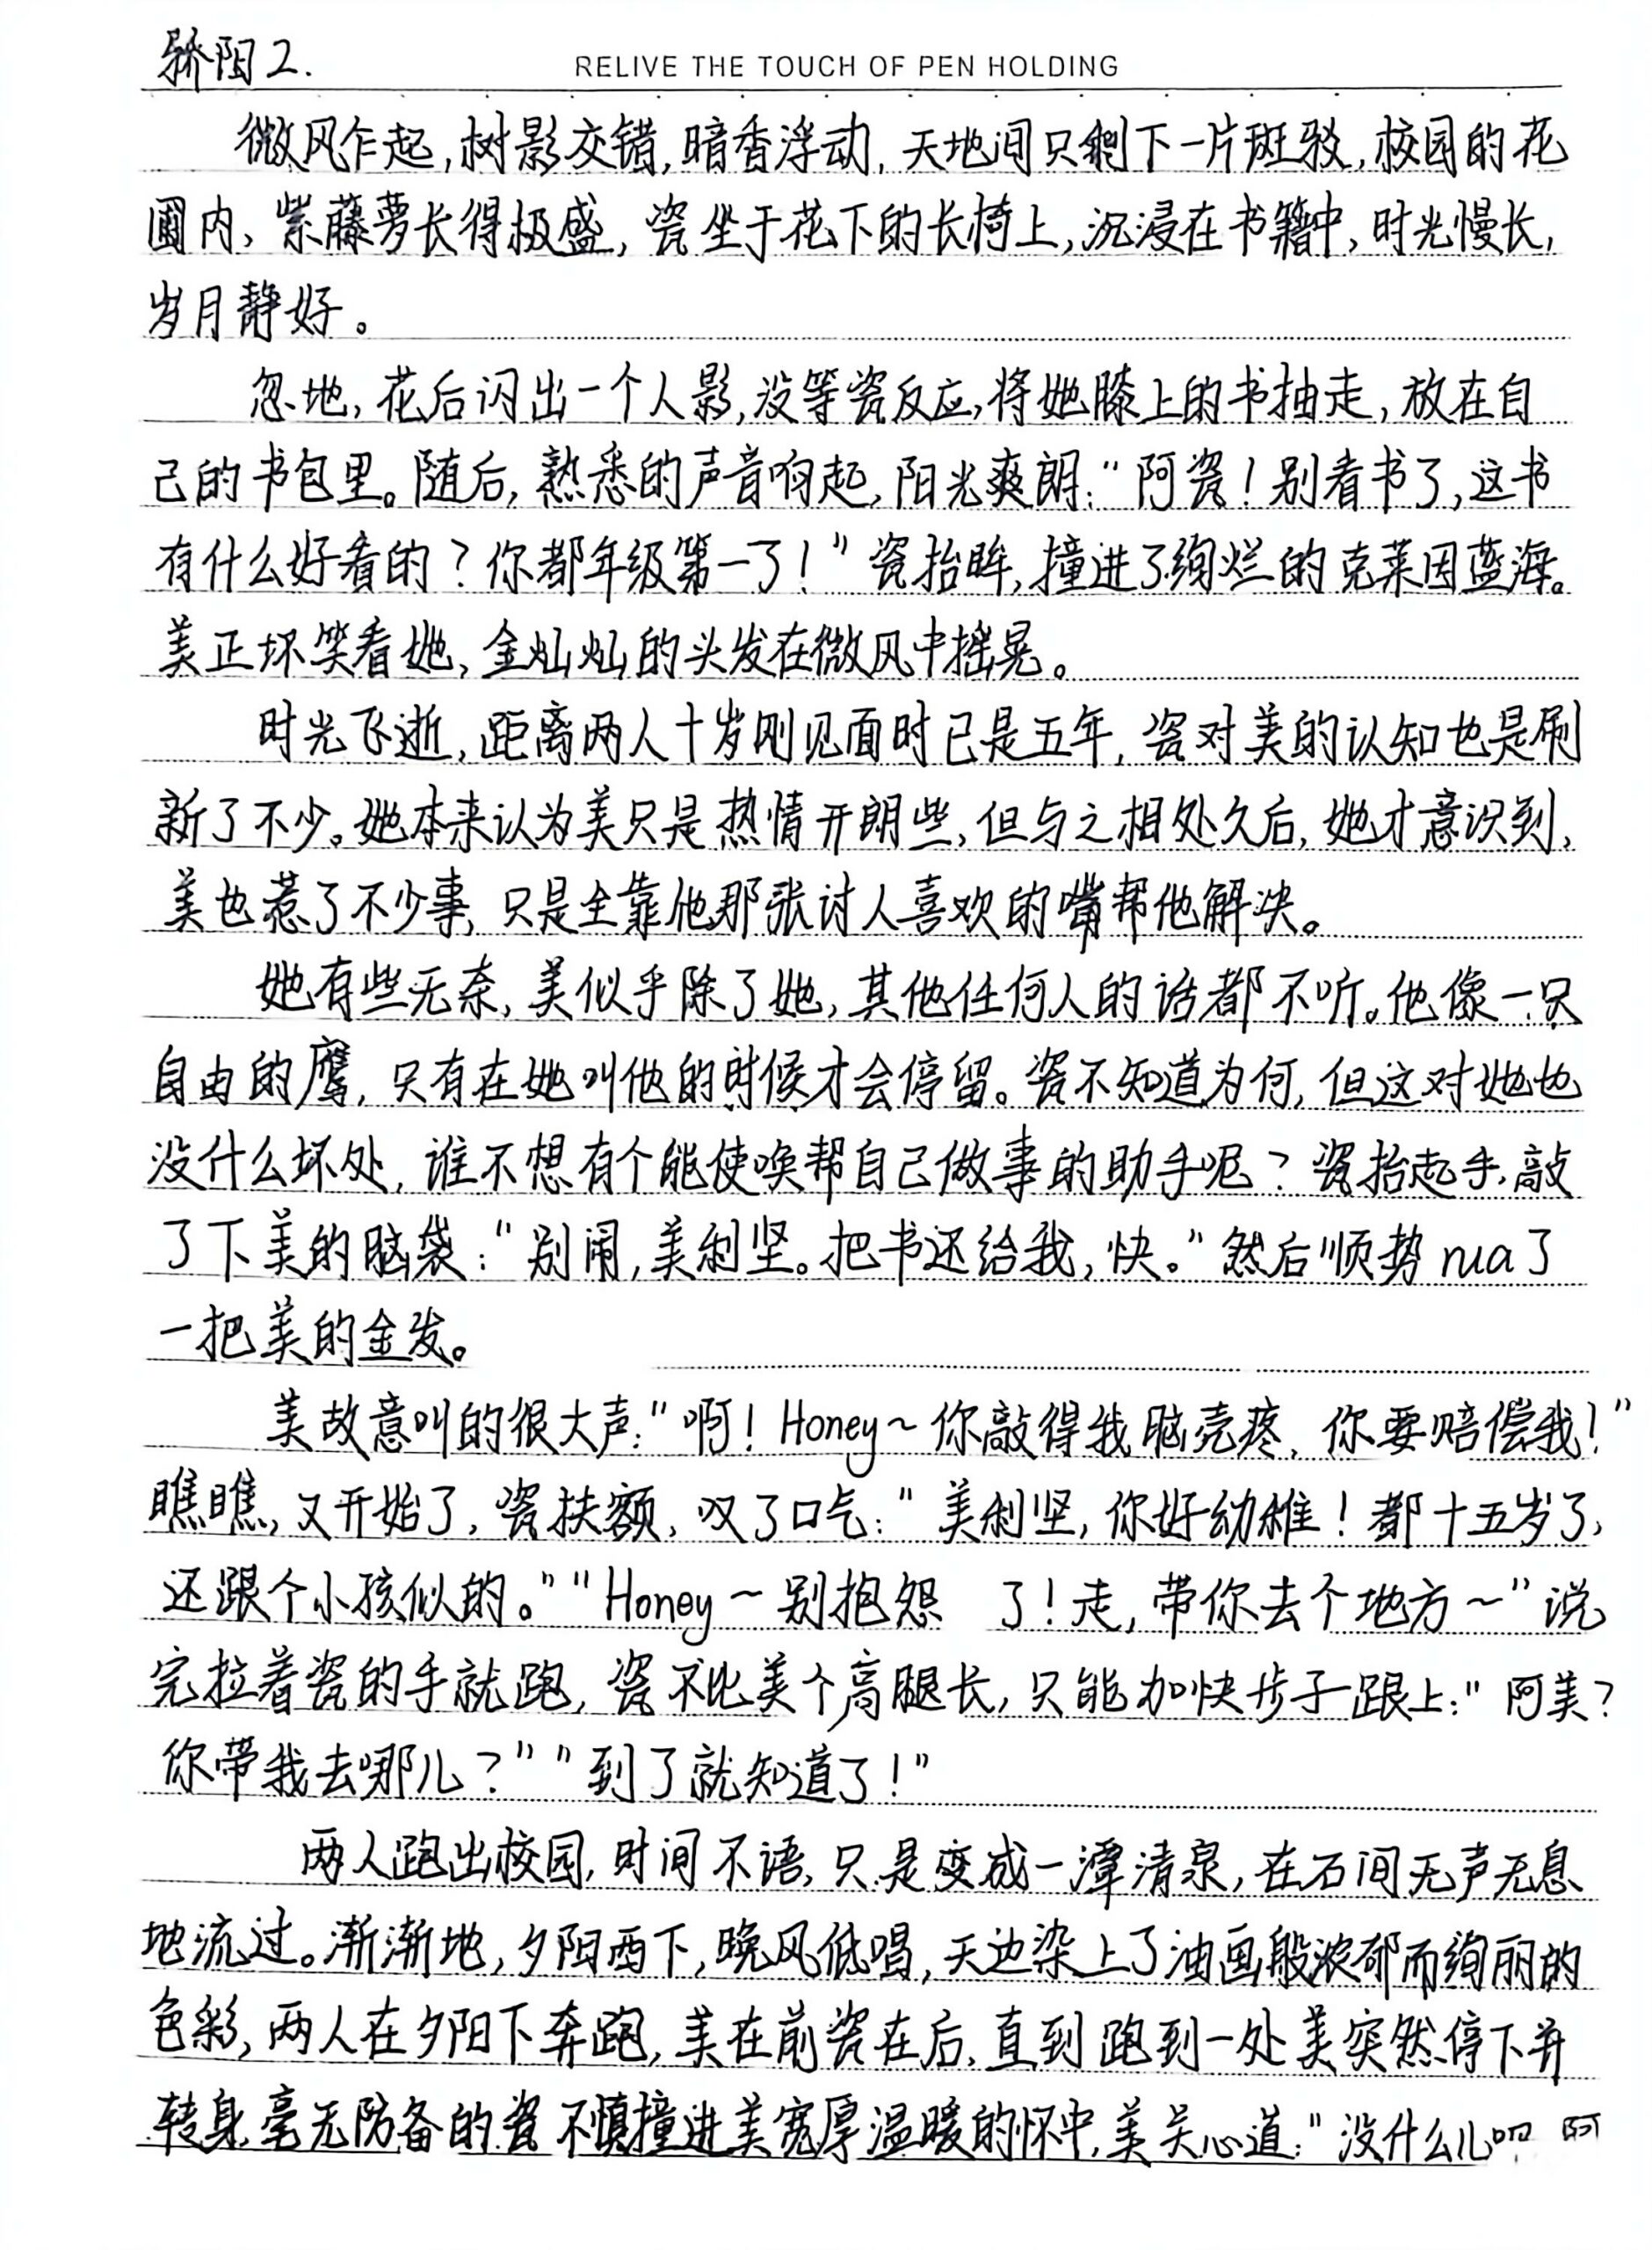 骄阳2.
RELIVE THE TOUCH OF PEN HOLDING
微风乍起,树影交错,暗香浮动,天地间只剩下一片斑驳,校园的花
圃内,紫藤萝长得极盛,瓷坐于花下的长椅上,沉浸在书籍中,时光慢长,
岁月静好。
忽地,花后闪出一个人影,没等瓷反应,将她膝上的书抽走,放在自
己的书包里。随后,熟悉的声音响起,阳光爽朗:“阿瓷!别看书了,这书
有什么好看的?你都年级第一了!”瓷抬眸,撞进了绚烂的克莱因蓝海。
美正坏笑看她,金灿灿的头发在微风中摇晃。
时光飞逝,距离两人十岁刚见面时已是五年,瓷对美的认知也是刷
新了不少。她本来认为美只是热情开朗些,但与之相处久后,她才意识到,
美也惹了不少事,只是全靠他那张讨人喜欢的嘴帮他解决。
她有些无奈,美似乎除了她,其他任何人的话都不听。他像一只
自由的鹰,只有在她叫他的时候才会停留。瓷不知道为何,但这对她也
没什么坏处,谁不想有个能使唤帮自己做事的助手呢?瓷抬起手,敲
了下美的脑袋:“别闹,美利坚。把书还给我,快。”然后顺势rua了
一把美的金发。
美故意叫的很大声:“啊!Honey~你敲得我脑壳疼,你要赔偿我!”
瞧瞧,又开始了,瓷扶额,叹了口气:“美利坚,你好幼稚!都十五岁了,
还跟个小孩似的。”“Honey~别抱怨 了!走,带你去个地方~”说
完拉着瓷的手就跑,瓷不比美个高腿长,只能加快步子跟上:“阿美?
你带我去哪儿?”“到了就知道了!”
两人跑出校园,时间不语,只是变成一潭清泉,在石间无声无息
地流过。渐渐地,夕阳西下,晚风低唱,天边染上了油画般浓郁而绚丽的
色彩,两人在夕阳下奔跑,美在前瓷在后,直到跑到一处美突然停下并
转身,毫无防备的瓷不慎撞进美宽厚温暖的怀中,美关心道:“没什么儿吧 阿